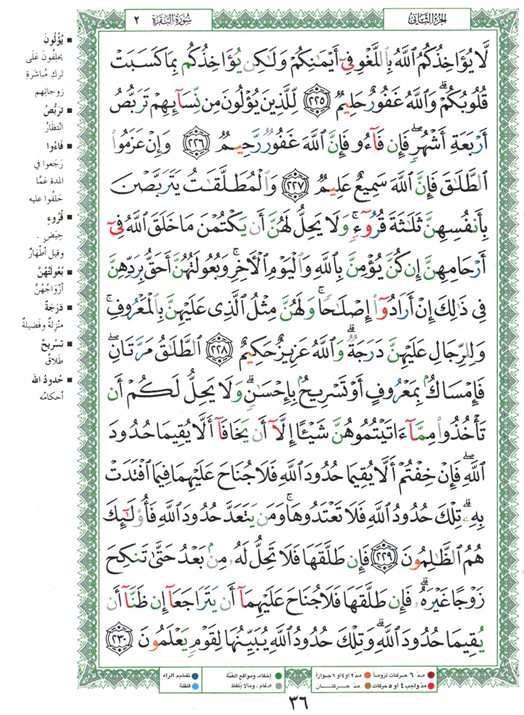 الجزء الثاني
سورة البقرة ٢
لَّا يُؤَاخِذُكُمُ اللَّهُ بِاللَّغْوِ فِي أَيْمَانِكُمْ وَلَٰكِن يُؤَاخِذُكُم بِمَا كَسَبَتْ
قُلُوبُكُمْ ۗ وَاللَّهُ غَفُورٌ حَلِيمٌ ٢٢٥ لِّلَّذِينَ يُؤْلُونَ مِن نِّسَائِهِمْ تَرَبُّصُ
أَرْبَعَةِ أَشْهُرٍ ۖ فَإِن فَاءُو فَإِنَّ اللَّهَ غَفُورٌ رَّحِيمٌ ٢٢٦ وَإِنْ عَزَمُوا
الطَّلَاقَ فَإِنَّ اللَّهَ سَمِيعٌ عَلِيمٌ ٢٢٧ وَالْمُطَلَّقَاتُ يَتَرَبَّصْنَ
بِأَنفُسِهِنَّ ثَلَاثَةَ قُرُوءٍ ۚ وَلَا يَحِلُّ لَهُنَّ أَن يَكْتُمْنَ مَا خَلَقَ اللَّهُ فِي
أَرْحَامِهِنَّ إِن كُنَّ يُؤْمِنَّ بِاللَّهِ وَالْيَوْمِ الْآخِرِ ۚ وَبُعُولَتُهُنَّ أَحَقُّ بِرَدِّهِنَّ
فِي ذَٰلِكَ إِنْ أَرَادُوا إِصْلَاحًا ۚ وَلَهُنَّ مِثْلُ الَّذِي عَلَيْهِنَّ بِالْمَعْرُوفِ ۚ
وَلِلرِّجَالِ عَلَيْهِنَّ دَرَجَةٌ ۗ وَاللَّهُ عَزِيزٌ حَكِيمٌ ٢٢٨ الطَّلَاقُ مَرَّتَانِ ۖ
فَإِمْسَاكٌ بِمَعْرُوفٍ أَوْ تَسْرِيحٌ بِإِحْسَانٍ ۗ وَلَا يَحِلُّ لَكُمْ أَن
تَأْخُذُوا مِمَّا آتَيْتُمُوهُنَّ شَيْئًا إِلَّا أَن يَخَافَا أَلَّا يُقِيمَا حُدُودَ
اللَّهِ ۖ فَإِنْ خِفْتُمْ أَلَّا يُقِيمَا حُدُودَ اللَّهِ فَلَا جُنَاحَ عَلَيْهِمَا فِيمَا افْتَدَتْ
بِهِ ۗ تِلْكَ حُدُودُ اللَّهِ فَلَا تَعْتَدُوهَا ۚ وَمَن يَتَعَدَّ حُدُودَ اللَّهِ فَأُولَٰئِكَ
هُمُ الظَّالِمُونَ ٢٢٩ فَإِن طَلَّقَهَا فَلَا تَحِلُّ لَهُ مِن بَعْدُ حَتَّىٰ تَنكِحَ
زَوْجًا غَيْرَهُ ۗ فَإِن طَلَّقَهَا فَلَا جُنَاحَ عَلَيْهِمَا أَن يَتَرَاجَعَا إِن ظَنَّا أَن
يُقِيمَا حُدُودَ اللَّهِ ۗ وَتِلْكَ حُدُودُ اللَّهِ يُبَيِّنُهَا لِقَوْمٍ يَعْلَمُونَ ٢٣٠
يُؤْلُونَ
يحلِفونَ عَلَى
تركِ مُباشَرةِ
زوجاتِهم
تَرَبُّصُ
انتظارُ
فَاءُوا
رَجَعوا في
المدة عَمَّا
حَلَفوا عليه
قُرُوءٍ
حِيَضٍ
وقيل أطْهَارٌ
بُعُولَتُهُنَّ
أزْوَاجُهُنَّ
دَرَجَةٌ
منْزِلَةٌ وفَضيلةٌ
تَسْرِيحٌ
طَلَاقٌ
حُدُودُ الله
أحكامُه
مدّ ٦ حركات لزوماً
مدّ ٢ أو ٤ أو ٦ جوازاً
إخفاء، ومواقع الغُنَّة
تفخيم الراء
مدّ واجب ٤ أو ٥ حركات
مدّ حركتان
ادغام، وما لا يُلفَظ
قلقلة
٣٦